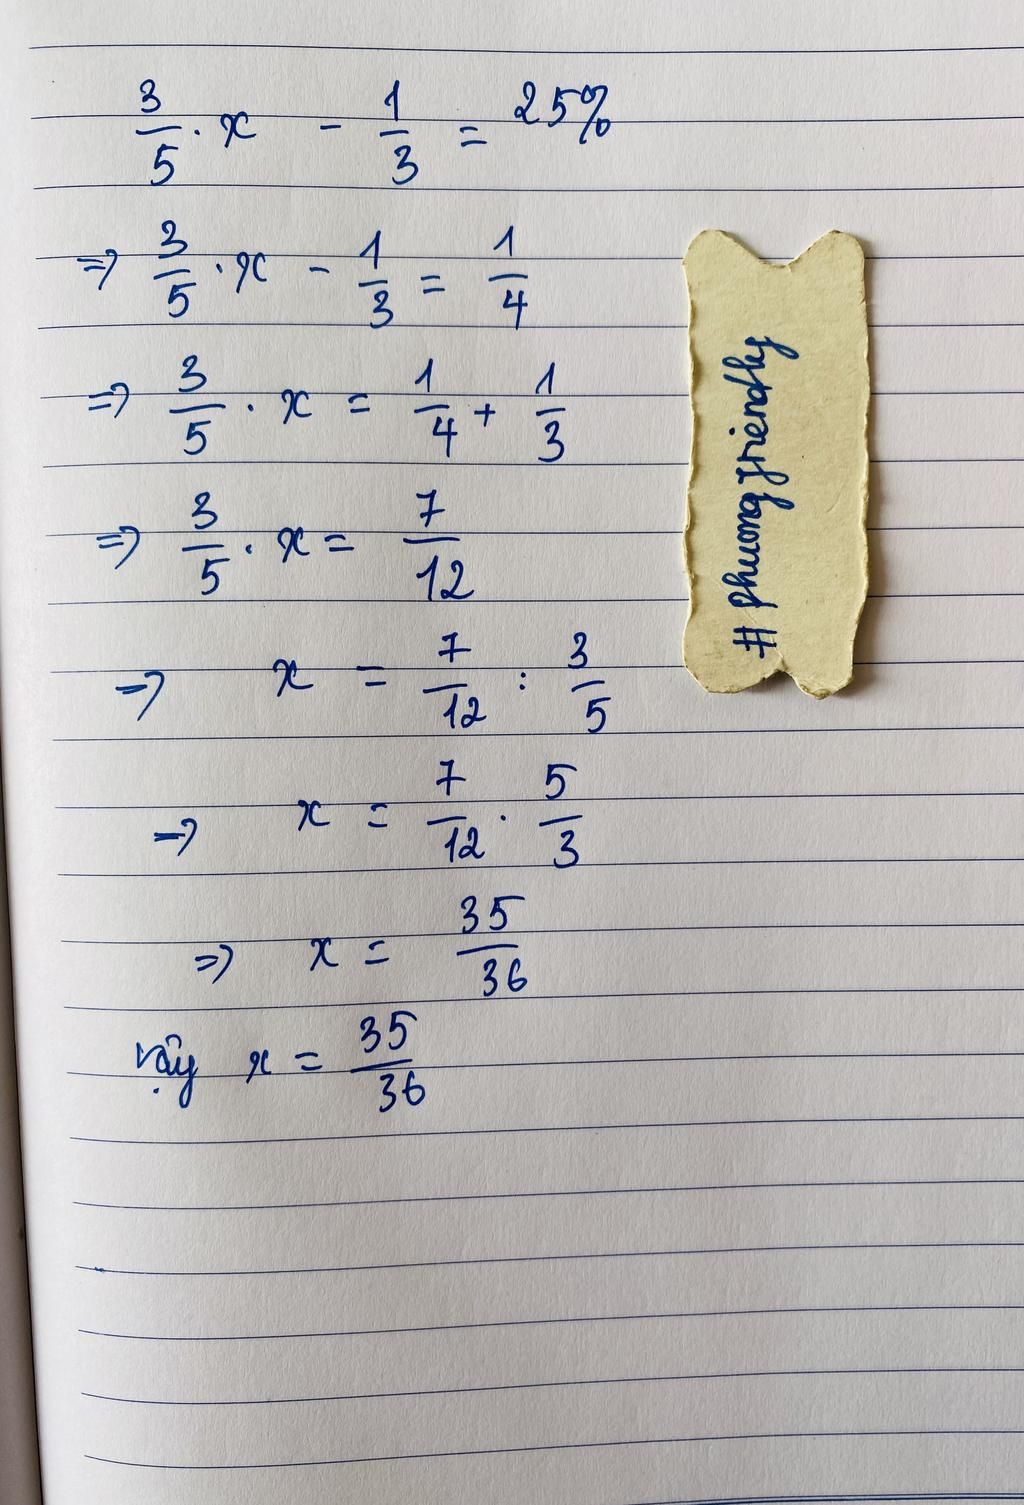 3/5 . x - 1/3 = 25%
=> 3/5 . x - 1/3 = 1/4
=> 3/5 . x = 1/4 + 1/3
=> 3/5 . x = 7/12
=> x = 7/12 : 3/5
=> x = 7/12 . 5/3
=> x = 35/36
vậy x = 35/36
# phuong friendly